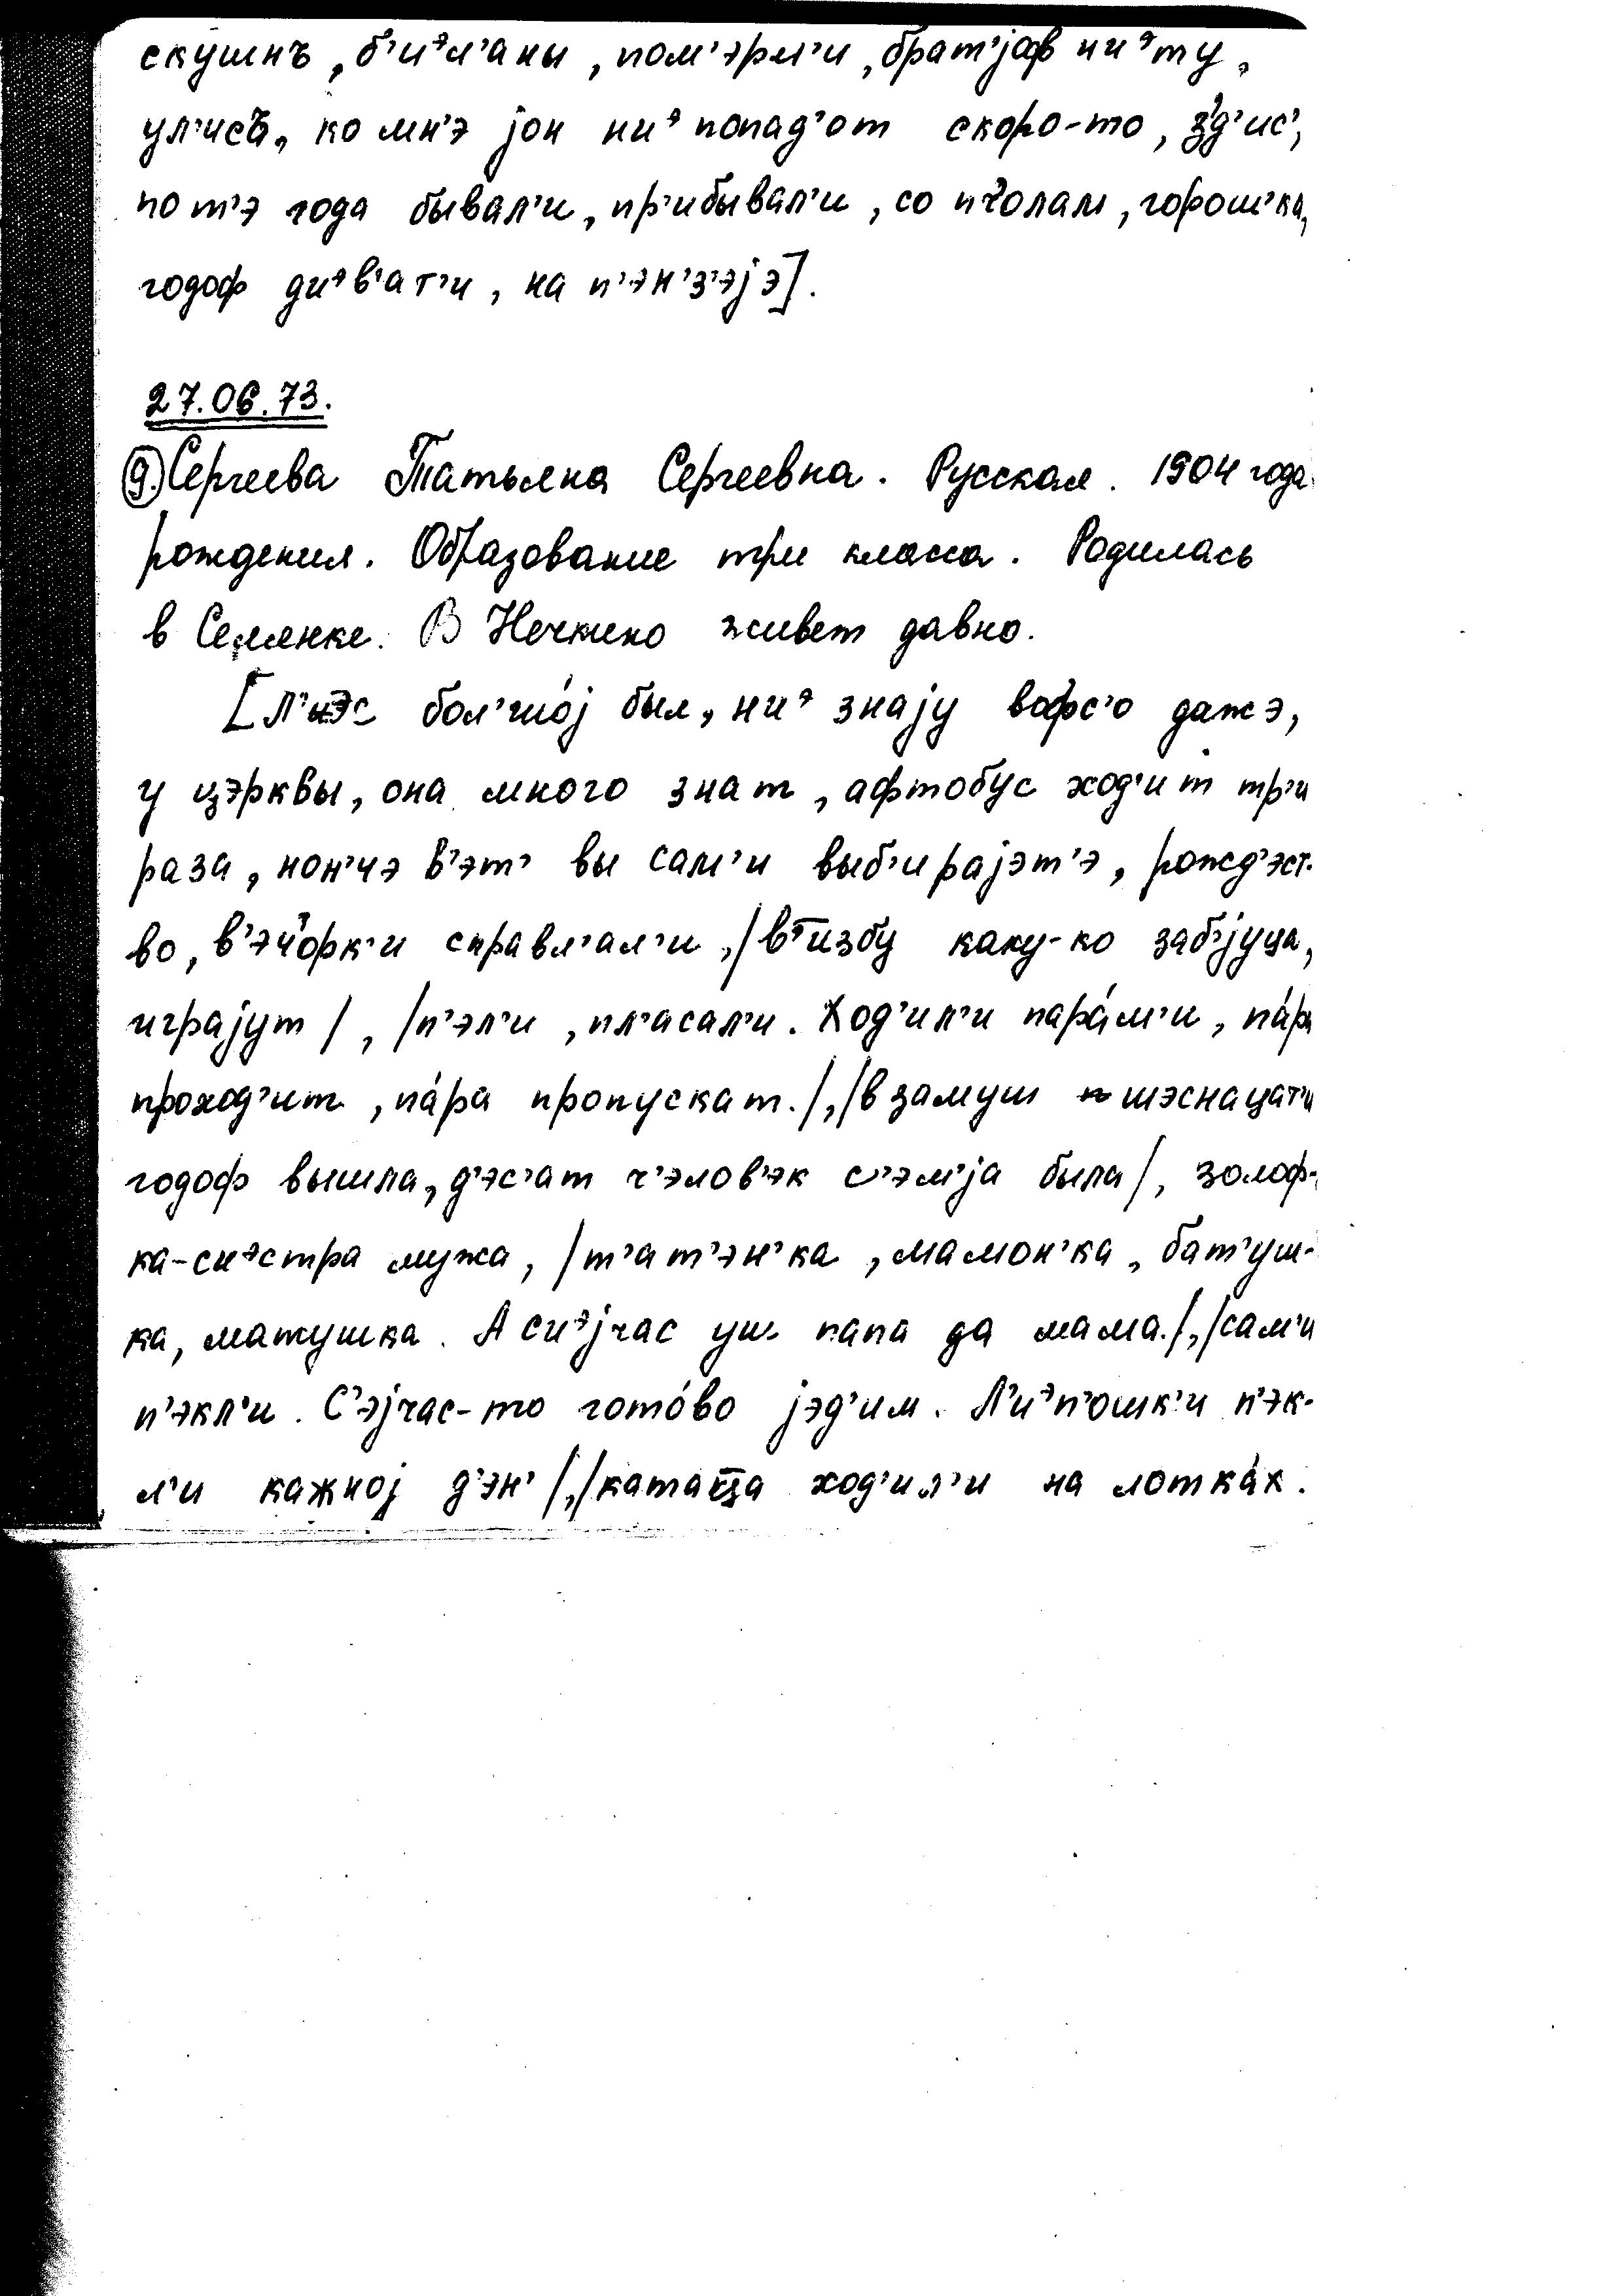 скушнъ, б'иэл'аны, пом'эрл'и, брат'јаф ниэту,
ул'исъ, ко мн'э јон ниэ попад'от скоро-то, з'д'ис',
по т'э года бывал'и, пр'ибывал'и, со пчолам, горош'ка,
годоф диэв'ат'и, на п'эн'з'эјэ].
27.06.73.
9. Сергеева Татьяна Сергеевна. Русская. 1904 года
рождения. Образование три класса. Родилась
в Семенке. В Нечкино живет давно.
[Л'иэс бол'шо́ј был, ниэ знају вофс'о дажэ,
у цэрквы, она много знат, афтобус ход'ит тр'и
раза, нон'чэ в'эт' вы сам'и выб'ирајэт'э, рожд'эст-
во, в'эч'орк'и справл'ал'и, /в избу каку-ко заб'јуца,
играјут/, /п'эл'и, пл'асал'и. Ход'ил'и пара́м'и, па́ра
проход'ит, па́ра пропускат./, /в замуш шэснацат'и
годоф вышла, д'эс'ат ч'элов'эк с'эм'ја была/, золоф-
ка-сиэстра мужа, /т'ат'эн'ка, мамон'ка, бат'уш-
ка, матушка. А сиэјчас уш папа да мама./, /сам'и
п'экл'и. С'эјчас-то гото́во јэд'им. Л'иэп'ошк'и п'эк-
л'и кажној д'эн'/, /катаца ход'ил'и на лотка́х.